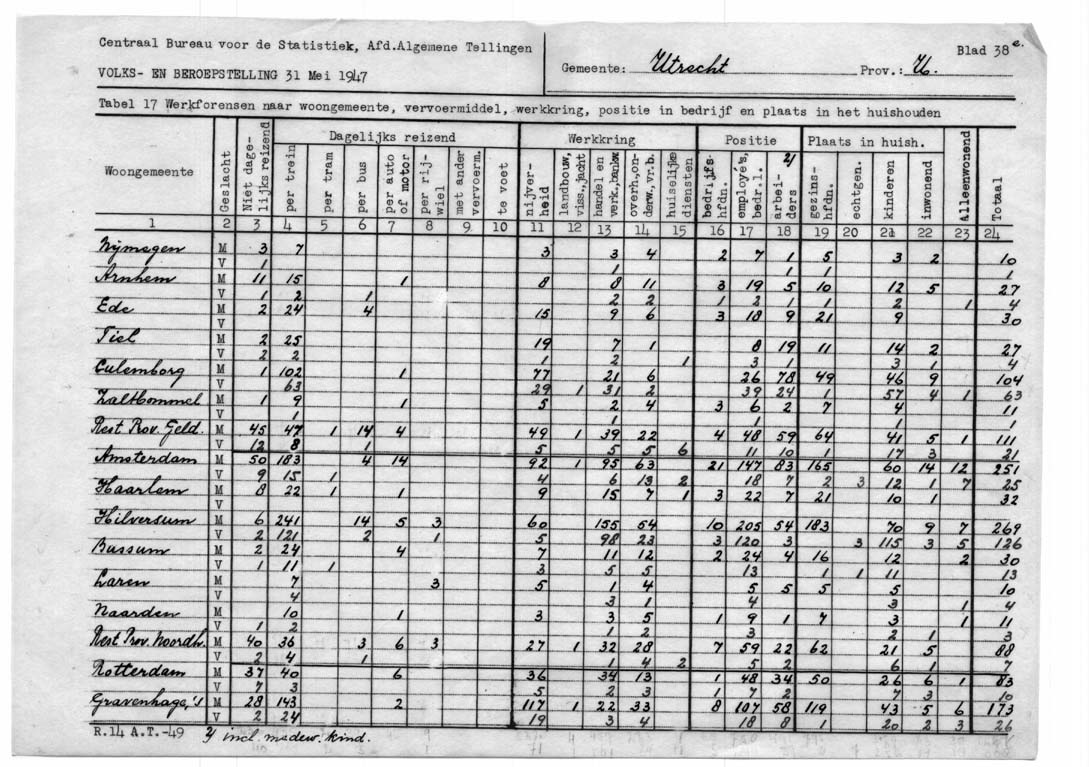 Centraal Bureau voor de Statistiek, Afd.Algemene Tellingen
VOLKS- EN BEROEPSTELLING 31 Mei 1947
Gemeente: Utrecht Prov.: U.
Blad 38e.
Tabel 17 Werkforensen naar woongemeente, vervoermiddel, werkkring, positie in bedrijf en plaats in het huishouden
Woongemeente Geslacht Niet dagelijks reizend Dagelijks reizend Werkkring Positie Plaats in huish. Alleenwonend Totaal
per trein per tram per bus per auto of motor per rijwiel met ander vervoerm. te voet nijverheid landbouw, viss., jacht handel en verk., bankw. overh., onderw., vr.b. huiselijke diensten bedrijfshfdn. employé's, bedr.l. arbeiders 2/ gezinshfdn. echtgen. kinderen inwonend
1 2 3 4 5 6 7 8 9 10 11 12 13 14 15 16 17 18 19 20 21 22 23 24
Nijmegen M 3 7 3 3 4 2 7 1 5 3 2 10
V 1 1 1 1 1
Arnhem M 11 15 1 8 8 11 3 19 5 10 12 5 27
V 1 2 1 2 2 1 2 1 1 2 1 4
Ede M 2 24 4 15 9 6 3 18 9 21 9 30
V
Tiel M 2 25 19 7 1 8 19 11 14 2 27
V 2 2 1 2 1 3 1 3 1 4
Culemborg M 1 102 1 77 21 6 26 78 49 46 9 104
V 63 29 1 31 2 39 24 1 57 4 1 63
Zaltbommel M 1 9 1 5 2 4 3 6 2 7 4 11
V 1 1 1 1 1
Rest Prov. Geld. M 45 47 1 14 4 49 1 39 22 4 48 59 64 41 5 1 111
V 12 8 1 5 5 5 6 11 10 1 17 3 21
Amsterdam M 50 183 4 14 92 1 95 63 21 147 83 165 60 14 12 251
V 9 15 1 4 6 13 2 18 7 2 3 12 1 7 25
Haarlem M 8 22 1 1 9 15 7 1 3 22 7 21 10 1 32
V
Hilversum M 6 241 14 5 3 60 155 54 10 205 54 183 70 9 7 269
V 2 121 2 1 5 98 23 3 120 3 3 115 3 5 126
Bussum M 2 24 4 7 11 12 2 24 4 16 12 2 30
V 1 11 1 3 5 5 13 1 1 11 13
Laren M 7 3 5 1 4 5 5 5 5 10
V 4 3 1 4 3 1 4
Naarden M 10 1 3 3 5 1 9 1 7 3 1 11
V 1 2 1 2 3 2 1 3
Rest Prov. Noordh. M 40 36 3 6 3 27 1 32 28 7 59 22 62 21 5 88
V 2 4 1 1 4 2 5 2 6 1 7
Rotterdam M 37 40 6 36 34 13 1 48 34 50 26 6 1 83
V 7 3 5 2 3 1 7 2 7 3 10
Gravenhage,'s M 28 143 2 117 1 22 33 8 107 58 119 43 5 6 173
V 2 24 19 3 4 18 8 1 20 2 3 26
R.14 A.T.-49 2/ incl. medew. kind.